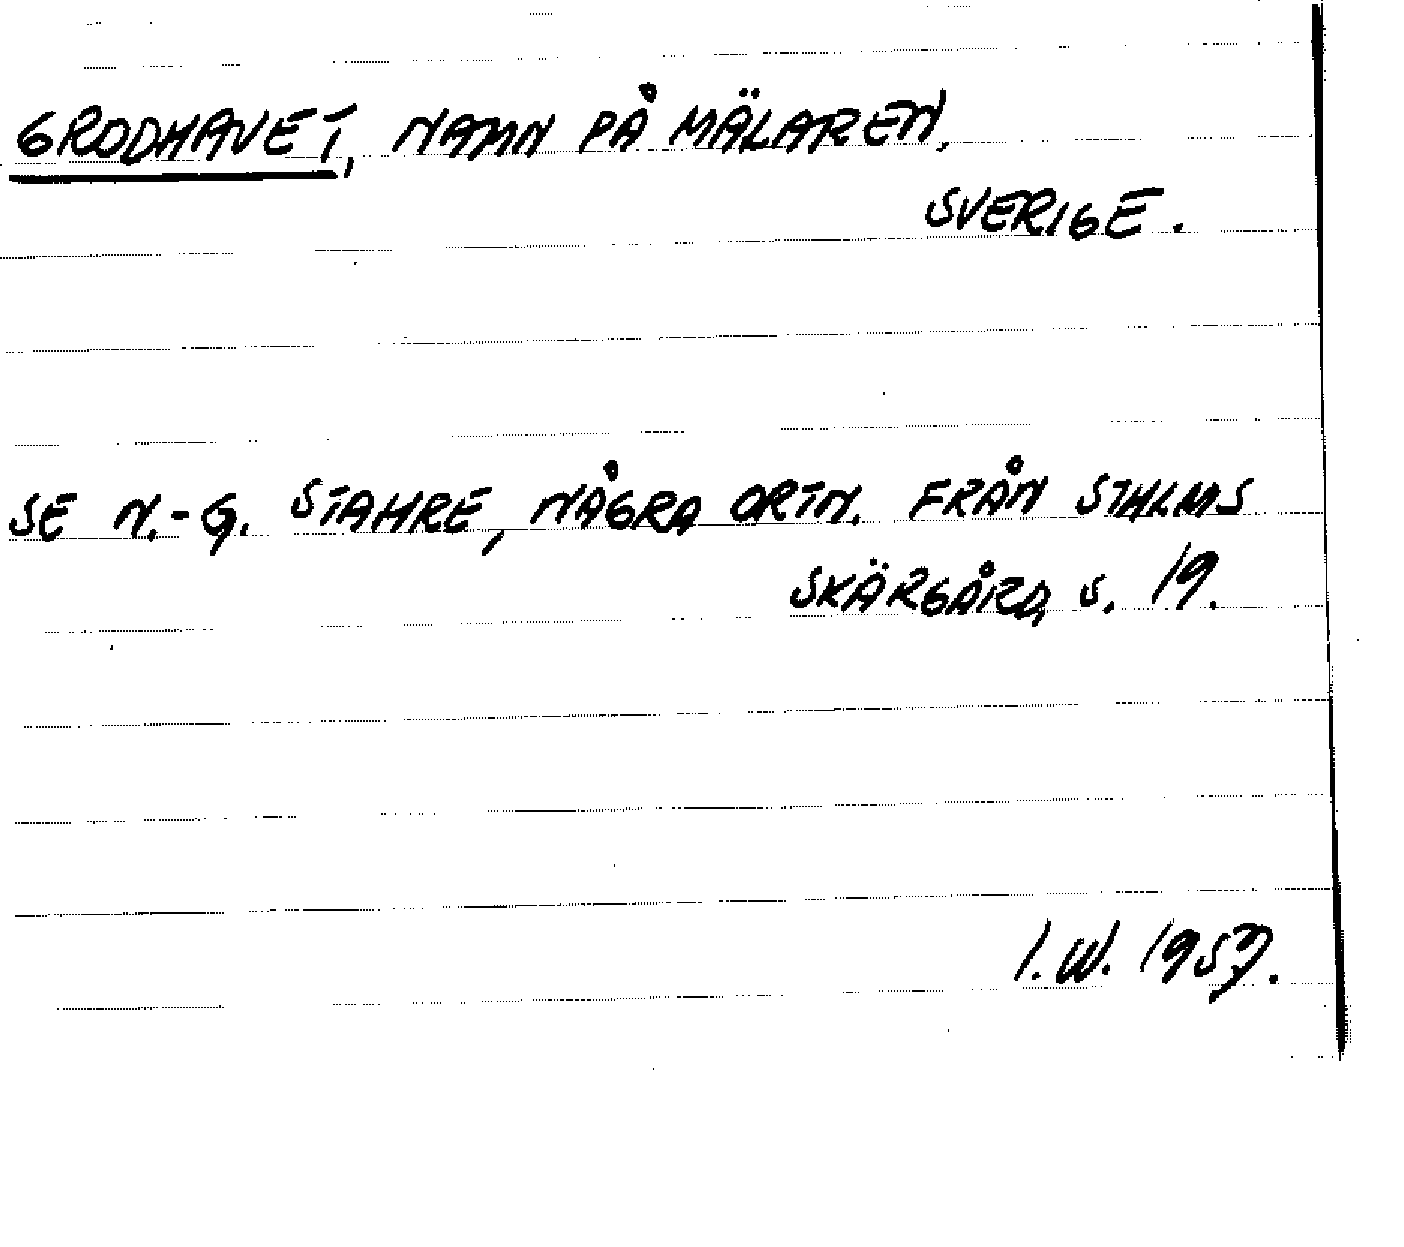 GRODHAVET, NAMN PÅ MÄLAREN,
SVERIGE.
SE N.-G. STAHRE, NÅGRA ORTN. FRÅN STHLMS
SKÄRGÅRD, S. 19.
I.W. 1957.